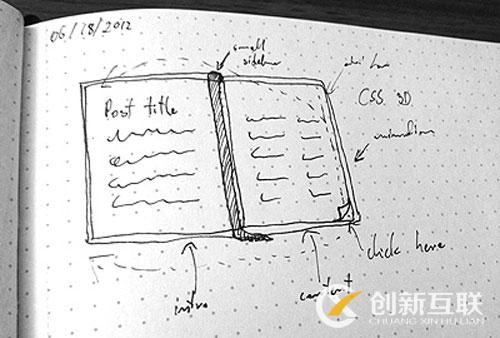 06/18/2012
small
sidebar
CSS 3D
Post title
click here
intro
content
创新互联
CHUANG XIN HU LIAN